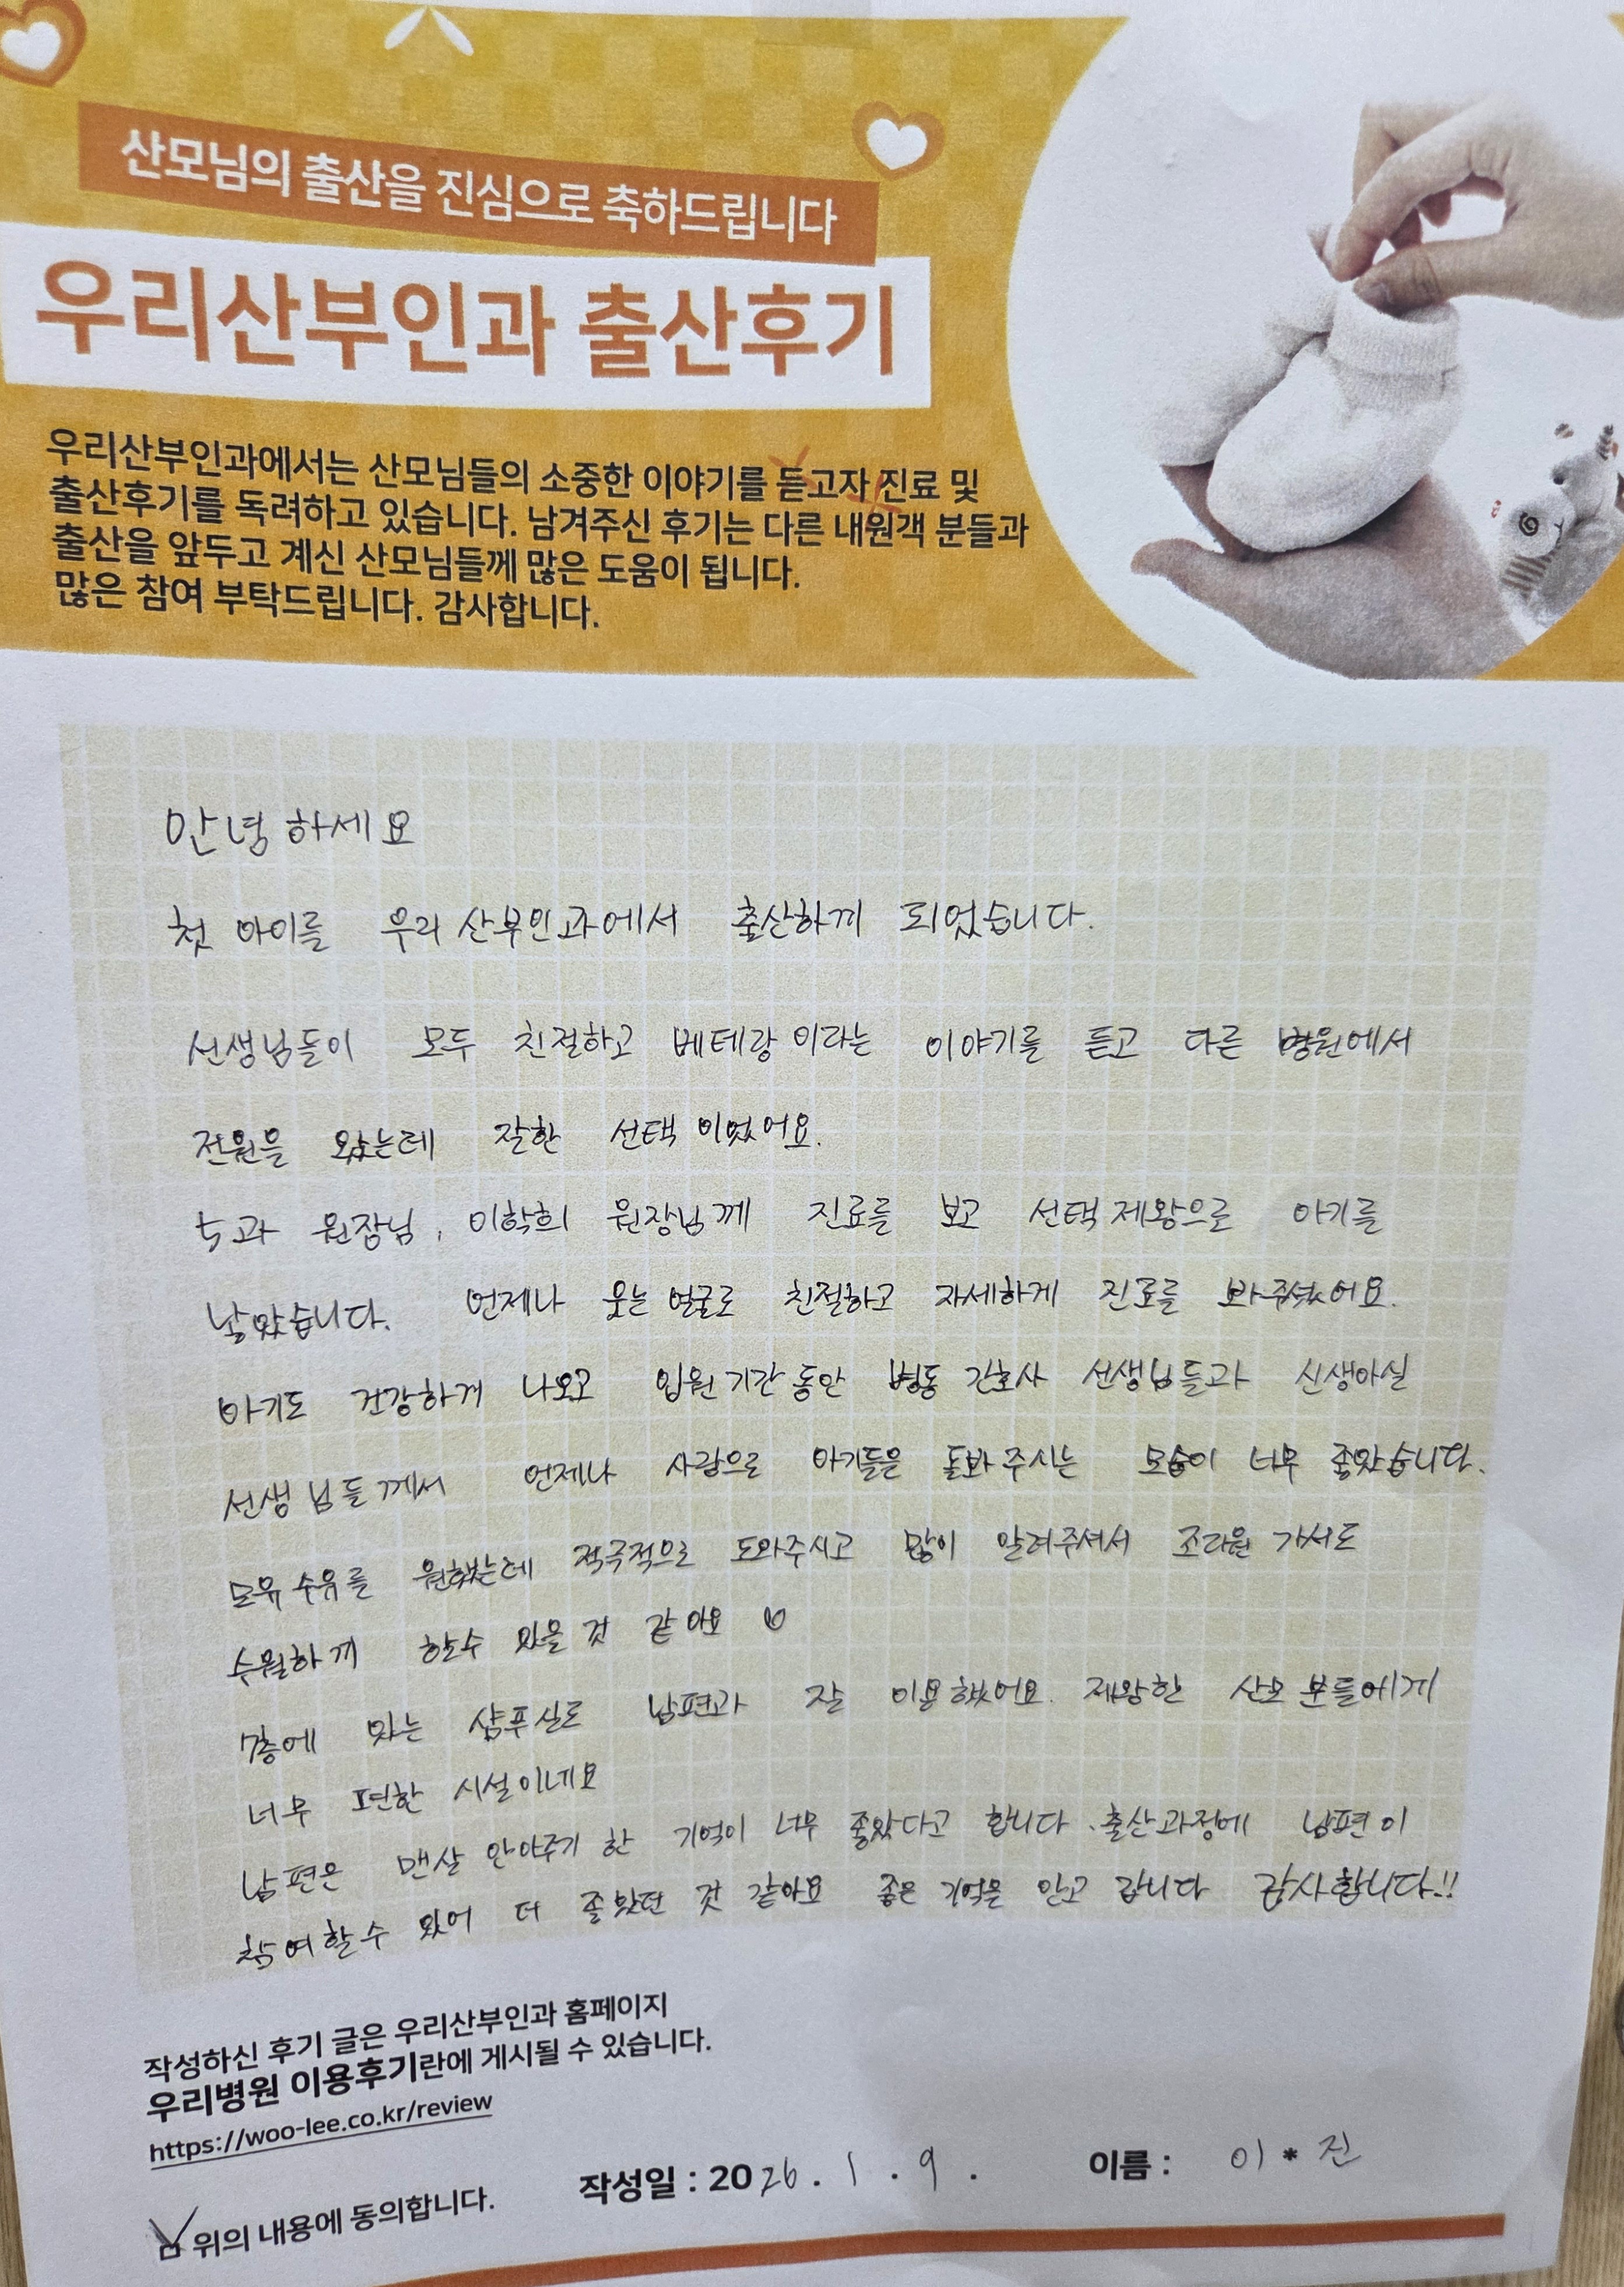 산모님의 출산을 진심으로 축하드립니다
우리산부인과 출산후기
우리산부인과에서는 산모님들의 소중한 이야기를 듣고자 진료 및
출산후기를 독려하고 있습니다. 남겨주신 후기는 다른 내원객 분들과
출산을 앞두고 계신 산모님들께 많은 도움이 됩니다.
많은 참여 부탁드립니다. 감사합니다.
안녕하세요
첫 아이를 우리산부인과에서 출산하게 되었습니다.
선생님들이 모두 친절하고 베테랑이라는 이야기를 듣고 다른 병원에서
전원을 왔는데 잘한 선택이었어요.
5과 원장님, 이학희 원장님께 진료를 보고 선택제왕으로 아기를
낳았습니다. 언제나 웃는 얼굴로 친절하고 자세하게 진료를 봐주셨어요.
아기도 건강하게 나오고 입원기간동안 병동 간호사 선생님들과 신생아실
선생님들께서 언제나 사랑으로 아기들은 돌봐주시는 모습이 너무 좋았습니다.
모유수유를 원했는데 적극적으로 도와주시고 많이 알려주셔서 조리원 가서도
수월하게 할수 있을 것 같아요 ♡
7층에 있는 샴푸실도 남편과 잘 이용했어요. 제왕한 산모분들에게
너무 편한 시설이네요
남편은 맨살 안아주기 한 기억이 너무 좋았다고 합니다. 출산과정에 남편이
참여할수 있어 더 좋았던 것 같아요 좋은 기억을 안고 갑니다 감사합니다!!
작성하신 후기 글은 우리산부인과 홈페이지
우리병원 이용후기란에 게시될 수 있습니다.
https://woo-lee.co.kr/review
위의 내용에 동의합니다. 작성일 : 2026. 1. 9. 이름 : 이*진